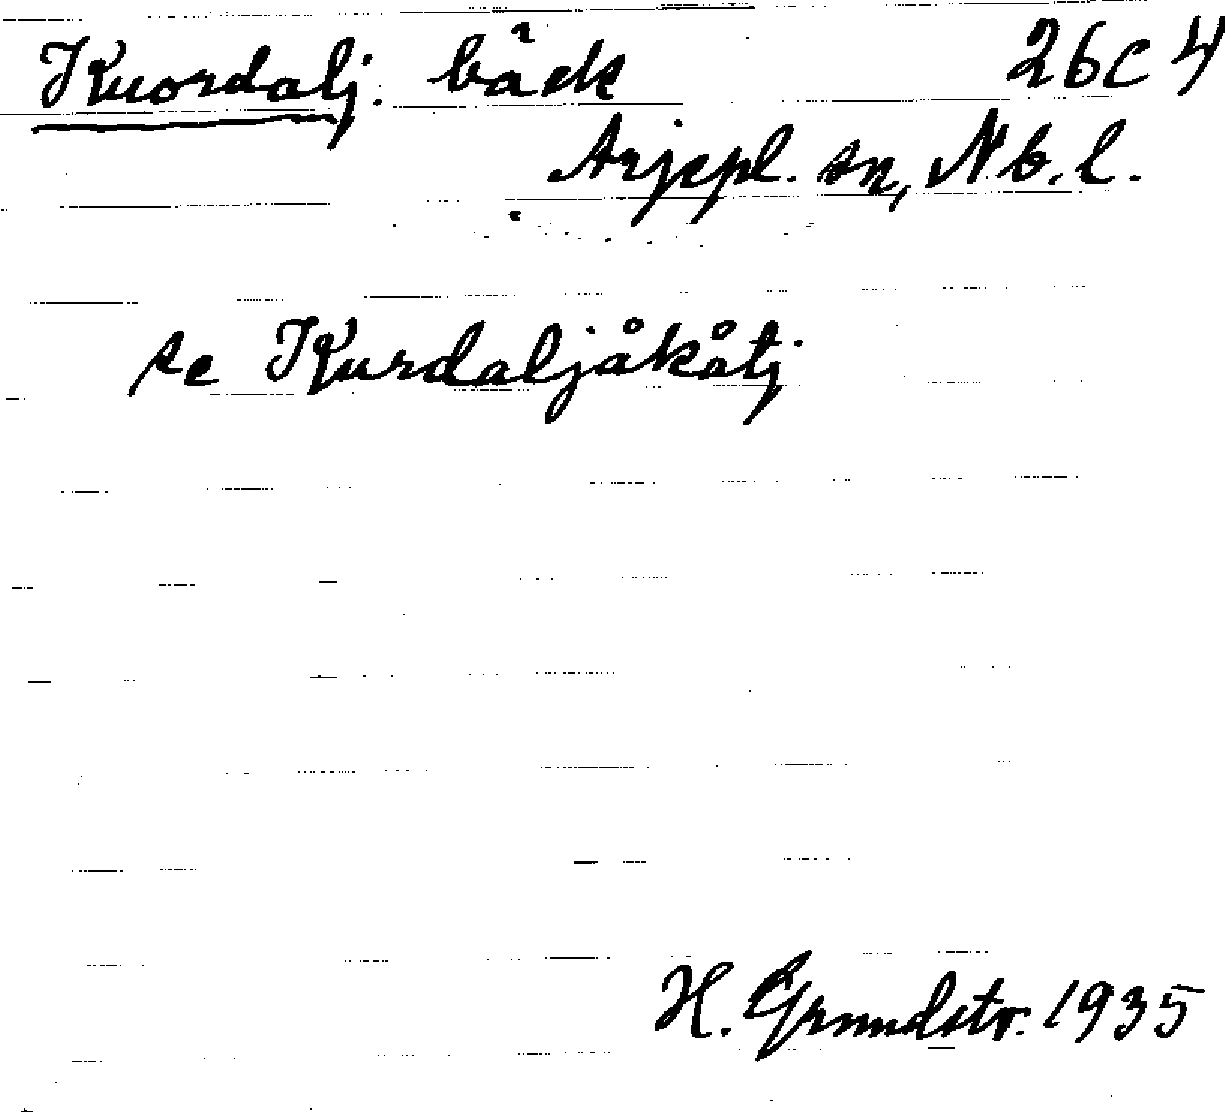 Kuordalj. bäck 26C4
Arjepl. sn, Nb. l.
se Kurdaljåkåtj
H. Grundstr. 1935